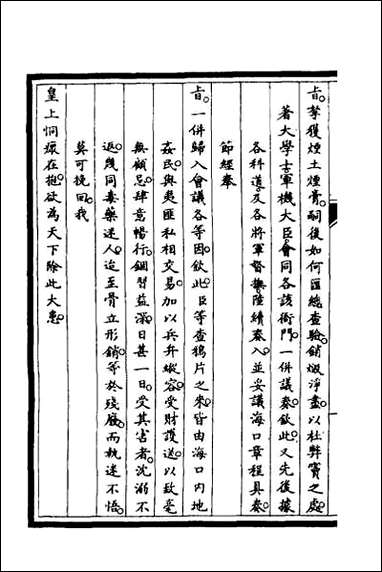 旨。拏獲煙土煙膏。嗣後如何匯總查驗。銷燬淨盡。以杜弊竇之處。
著大學士。軍機大臣。會同各該衙門。一併議奏。欽此。又先後據
各科道。及各將軍督撫。陸續奏入。並妥議海口章程具奏。
節經奉
旨。一併歸入會議各等因。欽此。臣等查鴉片之來。皆由海口內地
奸民。與夷匪私相交易。加以兵弁縱容。受財護送。以致毫
無顧忌。肆意暢行。錮習益深。日甚一日。受其害者。沈溺不
返。幾同毒藥迷人。迨至骨立形銷。等於殘廢。而執迷不悟。
莫可挽回。我
皇上恫瘝在抱。欲為天下除此大患。